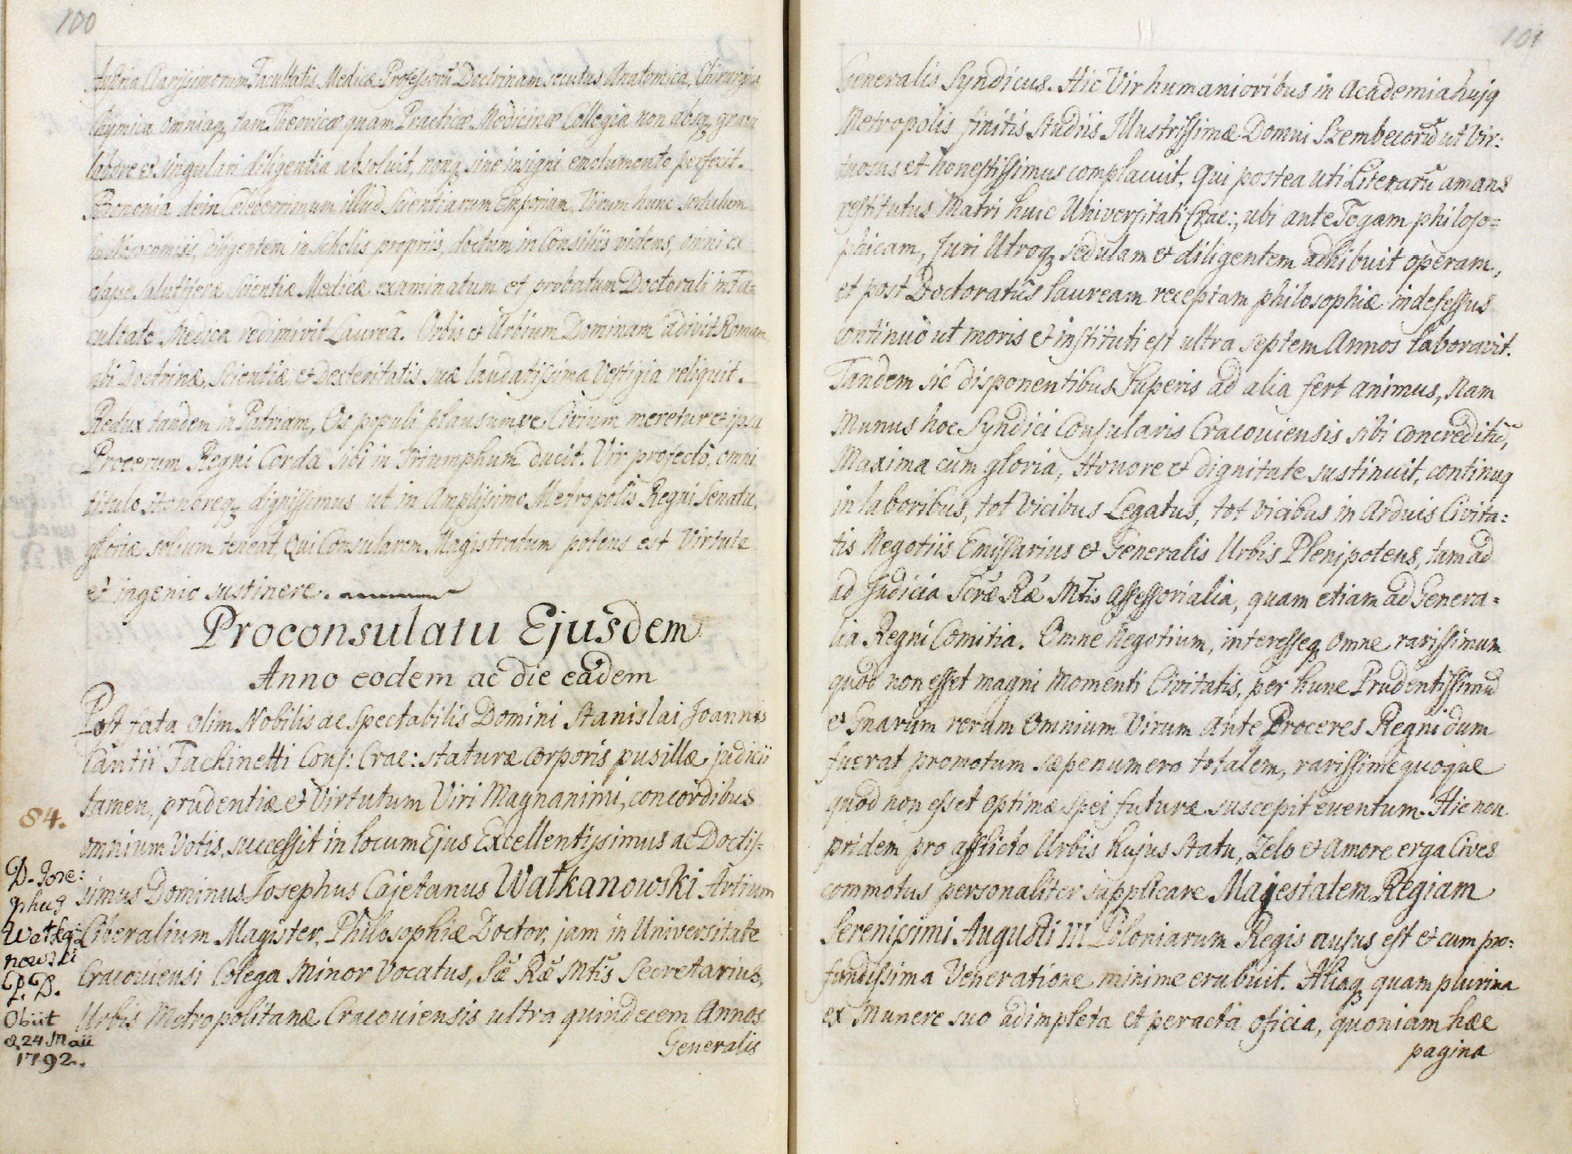 100
Clarissimorum Facultatis Medicæ Professorũ Doctrinam secutus Anatomica, Chirurgica
Chymica omniaq, tam Theoricæ quam Practicæ Medicinæ Collegia non absq, gravi
labore et singulari diligentia absoluit, nonq, sine insigni emolumento perfecit.
Bononia dein Celeberrimum illud Scientiarum Emporium, Virum hunc sedulum
diligentem in Scholis propriis, doctum in Consiliis videns, omni ex
salutiferæ Scientiæ Medicæ examinatum et probatum Doctorali in Fa=
cultate Medica redimivit Laureâ. Orbis et Urbium Dominam adivit Romam,
ubi Doctrinæ, Scientiæ et Dexteritatis suæ laudatissima Vestigia reliquit.
Redux tandem in Patriam, Os populi plausumve Civium meretur et ipsa
Procerum Regni Corda sibi in Triumphum ducit. Vir profectò, omni
titulo Honoreq, dignissimus ut in Amplissimo Metropolis Regni Senatu,
gloriæ solium teneat, Qui Consularem Magistratum potens est Virtute
et ingenio sustinere.
Proconsulatu Ejusdem
Anno eodem ac die eâdem
Post fata olim Nobilis ac Spectabilis Domini Stanislai Joannis
Cantii Fachinetti Cons: Crac: staturæ corporis pusillæ judicii
tamen, prudentiæ et Virtutum Viri Magnanimi, concordibus
omnium Votis, successit in locum Ejus Excellentissimus ac Doctis=
simus Dominus Josephus Cajetanus Watkanowski Artium
Liberalium Magister, Philosophiæ Doctor, jam in Universitate
Cracoviensi Colega Minor Vocatus, Sæ Ræ Mtis Secretarius,
Urbis Metropolitanæ Cracoviensis ultra quindecem Annos
Generalis
84.
D. Jose:
phus
Watka:
nowski
P. D.
Obiit
d. 24 Maii
1792.
101
Generalis Syndicus. Hic Vir humanioribus in Academia hujq
Metropolis finitis studiis Illustrissimæ Domui Szembecorũ ut Vir:
tuosus et honestissimus complacuit, Qui postea uti Literarũ amans
restitutus Matri huic Universitati Crac:, ubi ante Togam philoso=
phicam, Juri Utroq, sedulam et diligentem adhibuit operam,
et post Doctoratûs lauream receptam philosophiæ indefessus
continuò ut moris et instituti est ultra septem Annos laboravit.
Tandem sic disponentibus Superis ad alia fert animus, nam
Munus hoc Syndici Consularis Cracoviensis sibi concreditũ,
Maxima cum gloria, Honore et dignitate sustinuit, continuq
in laboribus, tot vicibus Legatus, tot vicibus in Arduis Civita=
tis Negotiis Emissarius et Generalis Urbis Plenipotens, tam ad
ad Judicia Scræ Ræ Mtis Assessorialia, quam etiam ad Genera=
lia Regni Comitia. Omne Negotium, interesseq, Omne rarissimum
quod non esset magni momenti Civitatis, per hunc Prudentissimũ
et Gnarum rerum Omnium Virum ante Proceres Regni dum
fuerat promotum sæpenumero totalem, rarissime quoque
quod non esset optimæ spei futuræ suscepit eventum. Hic non
pridem pro afflicto Urbis hujus statu, Zelo et Amore erga Cives
commotus personaliter supplicare Majestatem Regiam
Serenissimi Augusti III Poloniarum Regis ausus est et cum pro:
fundissima Veneratione minime erubuit. Aliaq, quam plurima
ex Munere suo adimpleta et peracta oficia, quoniam hæc
pagina